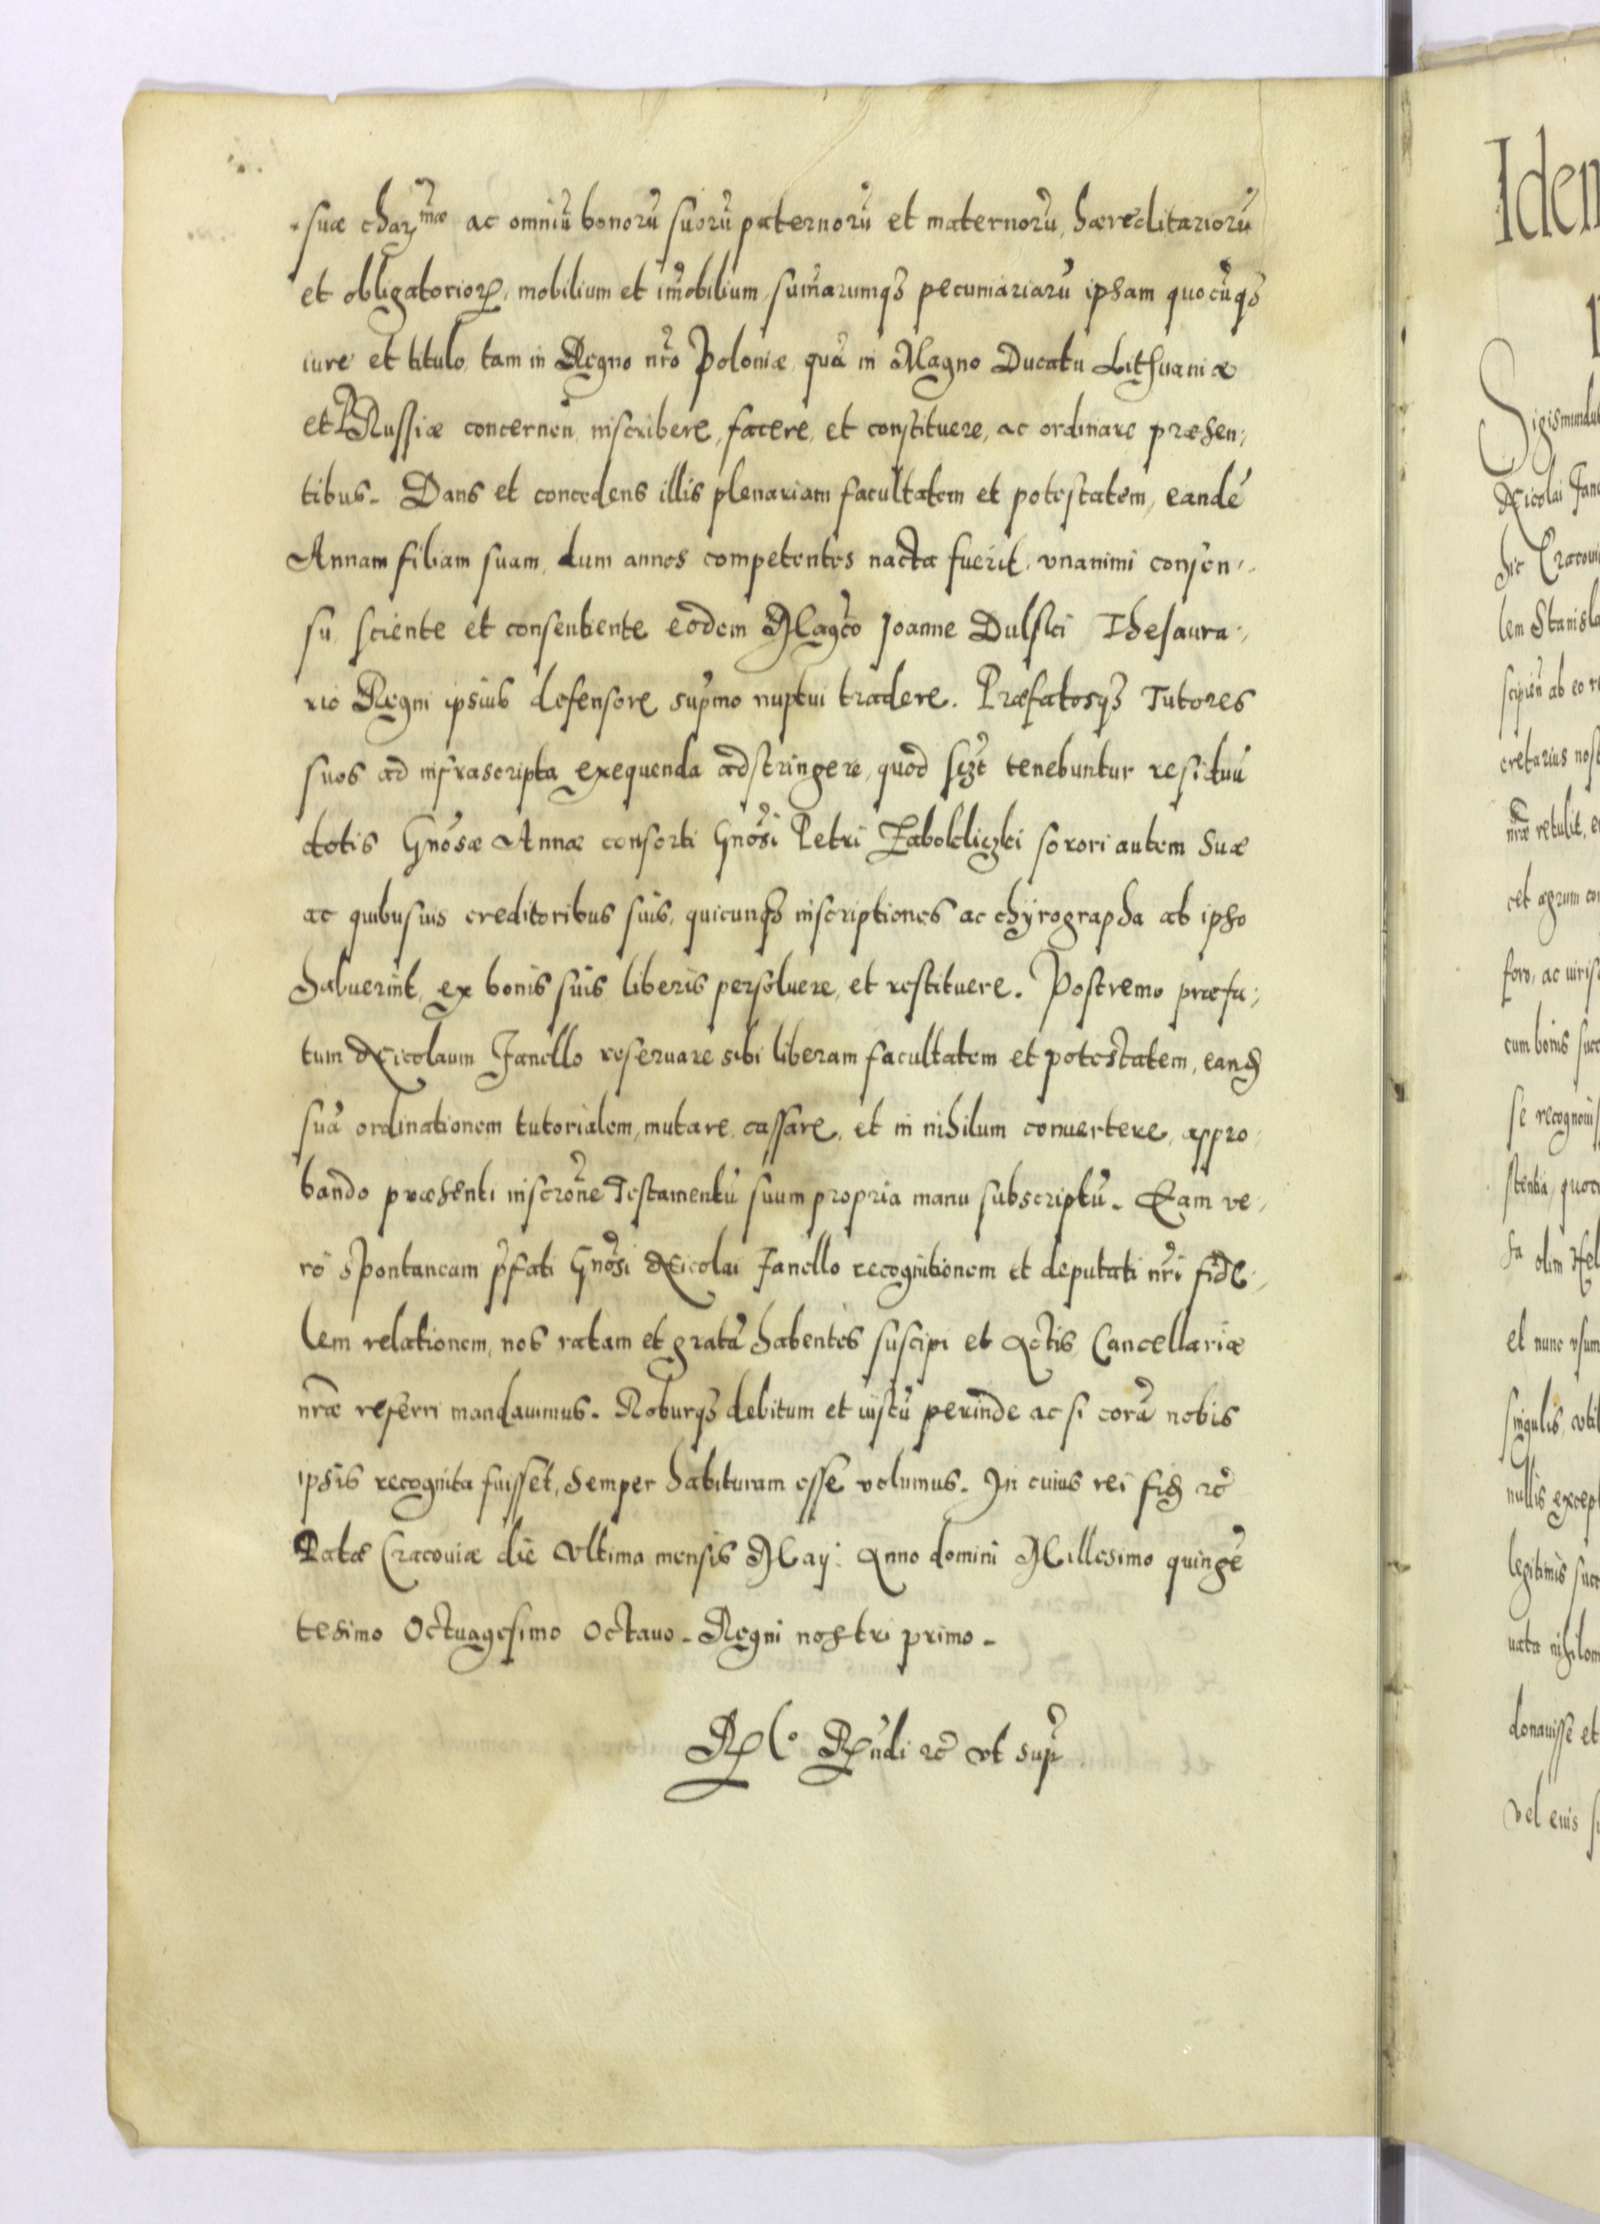 suæ char<sup>mæ</sup> ac omniū bonorū suorū paternorū et maternorū, hæreditariorū
et obligatorioꝝ, mobilium et im̄obilium, sum̄arumqꝫ pecuniariarū ipsam quocūqꝫ
iure et titulo, tam in Regno nr̄o Poloniæ, quā in Magno Ducatu Lithuaniæ
et Russiæ concernen̄, inscribere, facere, et constituere, ac ordinare præsen,
tibus. Dans et concedens illis plenariam facultatem et potestatem, eandē
Annam filiam suam, dum annos competentes nacta fuerit, vnanimi consen,
su, sciente et consentiente eodem Mag̃co Joanne Dulski Thesaura,
rio Regni ipsius defensore sup̄mo nuptui tradere. Præfatosqꝫ Tutores
suos ad infrascripta exequenda adstringere, quod scꝫt tenebuntur residuū
dotis Gn̄osæ Annæ consorti Gn̄osi Petri Zabokliczki sorori autem suæ
ac quibusuis creditoribus suis, quicunqꝫ inscriptiones ac chyrographa ab ipso
habuerint, ex bonis suis liberis persoluere, et restituere. Postremo præfa,
tum Nicolaum Janello reseruare sibi liberam facultatem et potestatem, eandꝫ
suā ordinationem tutorialem, mutare, cassare, et in nihilum conuertere, appro,
bando præsenti inscr̄one Testamentū suum propria manu subscriptū. Eam ve,
rò spontaneam p̄fati Gn̄osi Nicolai Janello recognitionem et deputati nr̄i fide,
lem relationem, nos ratam et gratā habentes suscipi et Actis Cancellariæ
nr̄æ referri mandauimus. Roburqꝫ debitum et iustū perinde ac si corā nobis
ipsis recognita fuisset, semper habituram esse volumus. In cuius rei fidꝫ ꝛc̄
Datæ Cracouiæ die Vltima mensis Maij. Anno domini Millesimo quingē
tesimo Octuagesimo Octauo. Regni nostri primo.
R<sup>o</sup> R̄ndi ꝛc̄ vt sup̄
Idem
Sigismundu
Nicolai Jane
hic Cracoui
lem Stanisla
scipien̄ ab eo re
cretarius nost
nr̄æ retulit, e
et agrum con
foro, ac iuris
cum bonis succ
se recognouis
stentia, quod
sa olim Hel
et nunc vsum
singulis, vtil
nullis excep
legitimis succ
uata nihilom
donauisse et
vel eius s